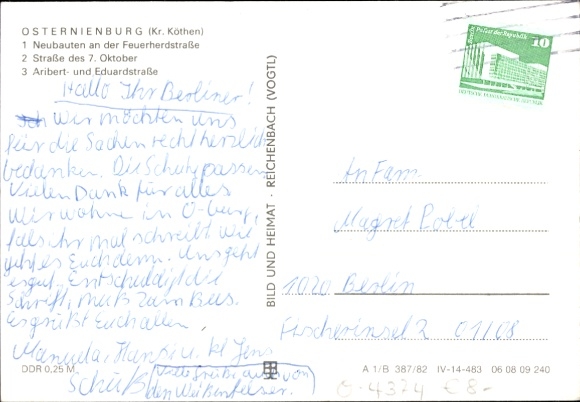 OSTERNIENBURG (Kr. Köthen)
1 Neubauten an der Feuerherdstraße
2 Straße des 7. Oktober
3 Aribert- und Eduardstraße
Hallo Ihr Berliner!
Wir möchten uns
für die Sachen recht herzlich
bedanken. Die Schuhe passen
Vielen Dank für alles
Wir wohne in O-burg,
falls ihr mal schreibt wie
geht es Euch denn. Uns geht
es gut. Entschuldigt die
Schrift, muß zum Bus.
Es grüßt Euch allen,
Manuela, Hansi u. kl Jens
Schüß
Viele Grüße auch von
den Weißenfelser.
DDR 0,25 M
BILD UND HEIMAT · REICHENBACH (VOGTL)
Palast der Republik
10
An Fam.
Magret
1020 Berlin
Fischerinsel 2 01/08
A 1/B 387/82 IV-14-483 06 08 09 240
O-4374 € 8-